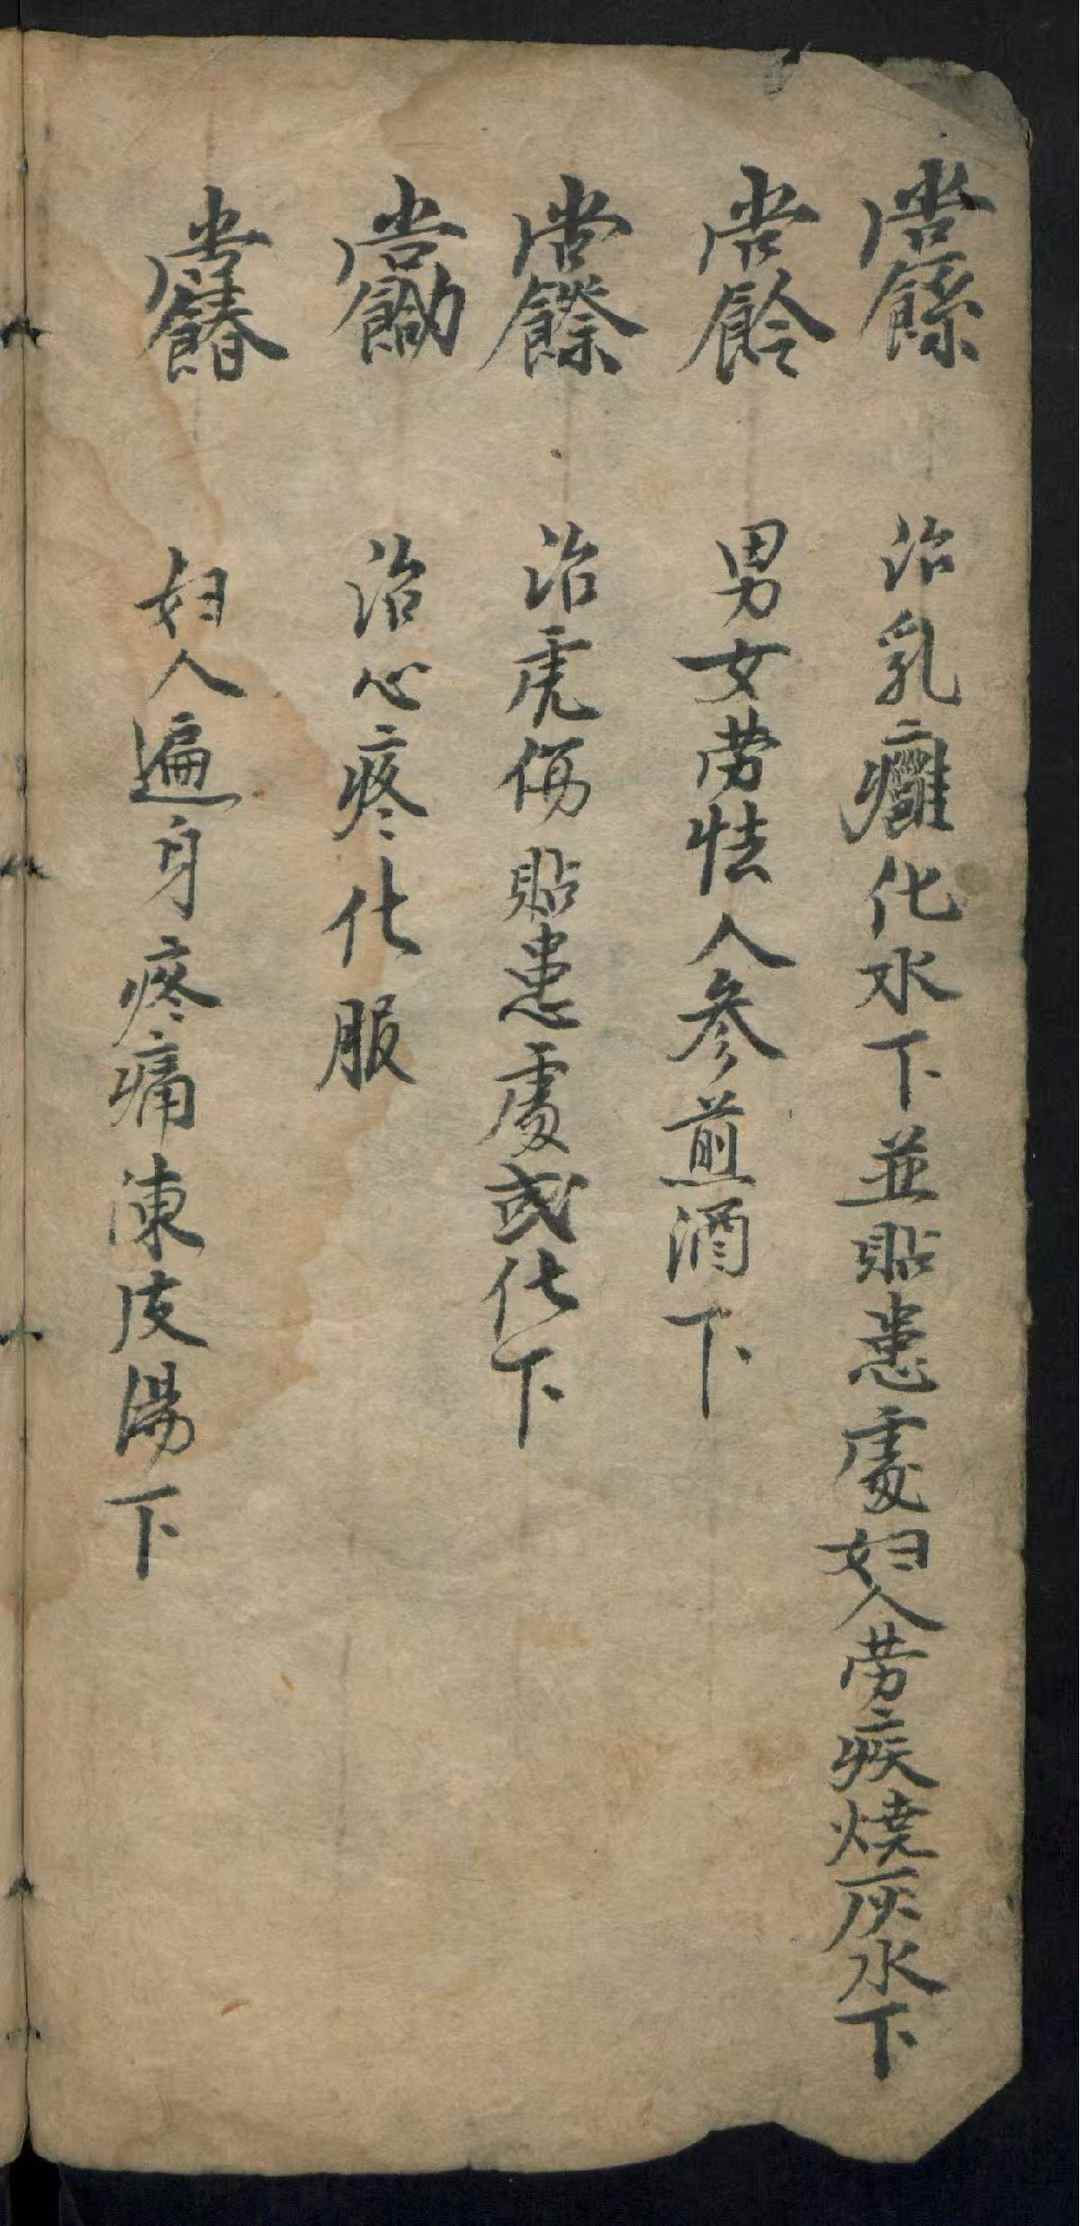 治乳癰化水下並貼患處妇人劳疾燒灰水下
男女劳怯人參煎酒下
治虎傷貼患處或化下
治心疼化服
妇人遍身疼痛陳皮湯下